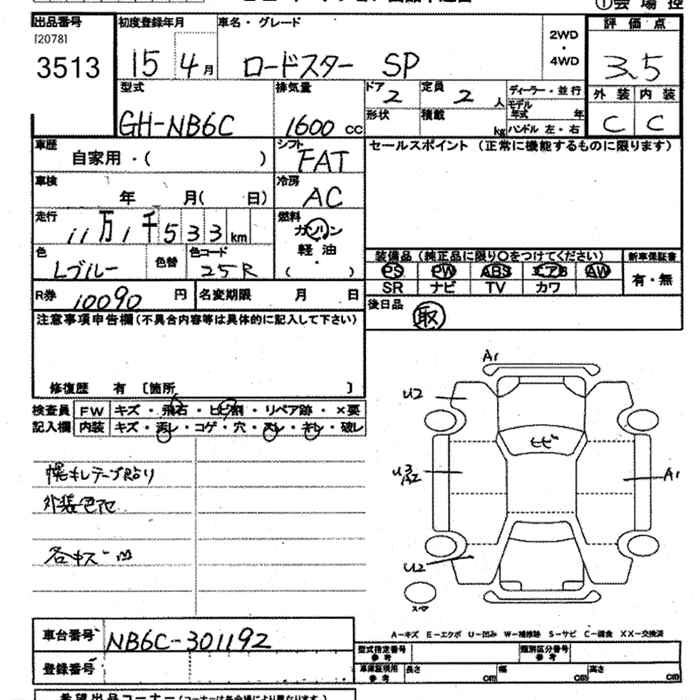 出品番号 初度登録年月 車名・グレード 評価点
[2078]
3513 15 4月 ロードスター SP 2WD・4WD 3.5
型式 排気量 ドア 2 定員 2 人 ディーラー・並行 外装 内装
GH-NB6C 1600 cc 形状 積載 kg モデル年式 年 ハンドル 左・右 C C
車歴 自家用・( ) シフト FAT セールスポイント (正常に機能するものに限ります)
車検 年 月( 日) 冷房 AC
走行 11万1千533km 燃料 ガソリン 軽・油 ( )
色 Lブルー 色替 色コード 25R 装備品(純正品に限り○をつけてください) 新車保証書
PS PW ABS エアB AW 有・無
SR ナビ TV カワ
R券 10090円 名変期限 月 日 後日品 取
注意事項申告欄(不具合内容等は具体的に記入して下さい)
修復歴 有 〔箇所 〕
検査員 FW キズ・飛石・ヒビ割・リペア跡・×要
記入欄 内装 キズ・汚レ・コゲ・穴・スレ・キレ・破レ
A1
U2
ヒビ
U3
A2
A1
U2
幌キレテープ貼り
外装色アセ
各キズ 凹
スペア
A-キズ E-エクボ U-凹み W-補修跡 S-サビ C-腐食 XX-交換済
車台番号 NB6C-301192
登録番号
型式指定番号参考 類別区分番号参考
車庫証明用参考 長さ cm 幅 cm 高さ cm
希望出品コーナー